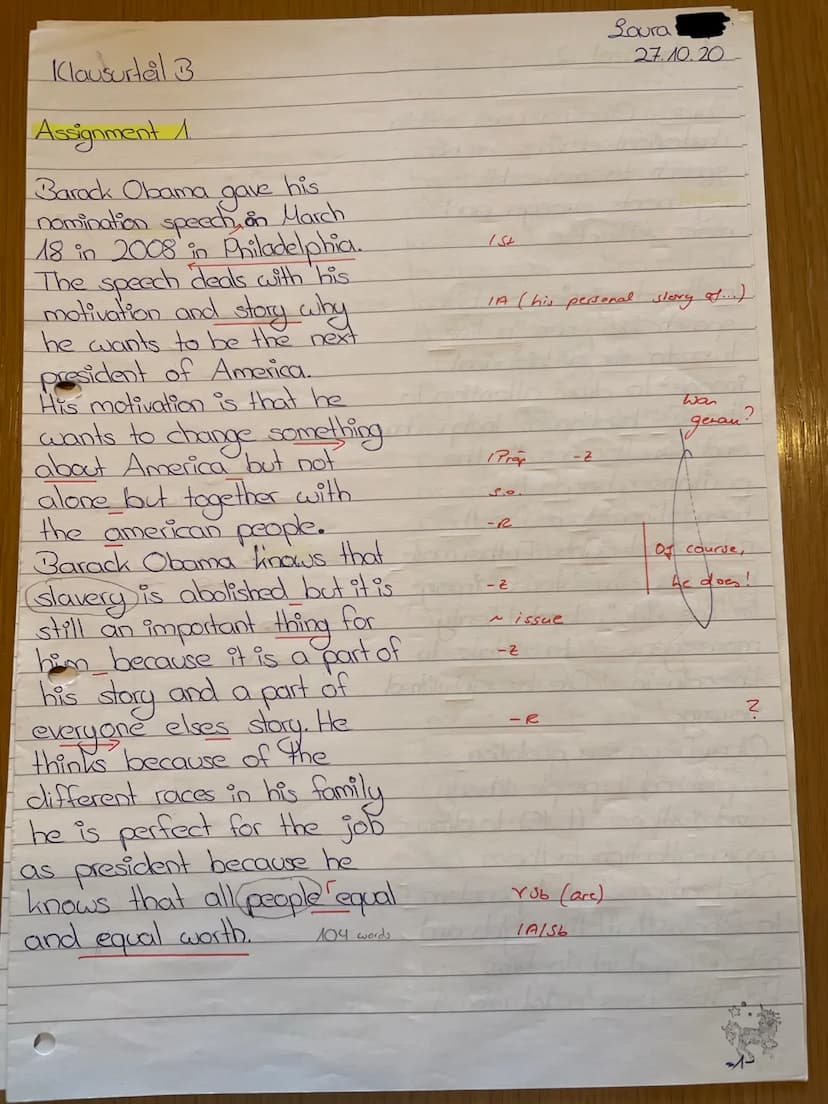 Laura
27.10.20
Klausurteil B
Assignment 1
Barack Obama gave his
nomination speech, on March
18 in 2008 in Philadelphia. 1 St
The speech deals with his
motivation and story why 1A (his personal story of...)
he wants to be the next
president of America.
His motivation is that he Was
wants to change something genau?
about America but not 1 Präp -Z
alone but together with s.o.
the american people. -R
Barack Obama knows that Of course,
slavery is abolished but it is -Z he does!
still an important thing for ~ issue
him because it is a part of -Z
his story and a part of
everyone elses story. He -R ?
thinks because of the
different races in his family
he is perfect for the job
as president because he
knows that all people equal γ Sb (are)
and equal worth. 104 words 1A/Sb
-1-